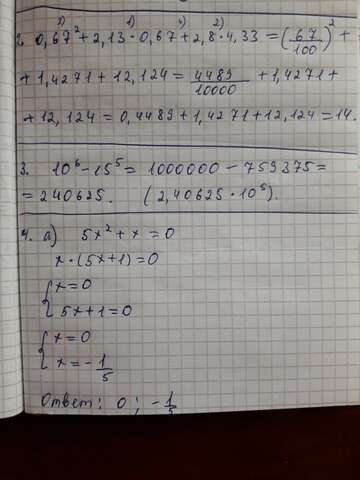 3) 1) 4) 2)
2. 0,67² + 2,13 · 0,67 + 2,8 · 4,33 = (67/100)² +
+ 1,4271 + 12,124 = 4489/10000 + 1,4271 +
+ 12,124 = 0,4489 + 1,4271 + 12,124 = 14.
3. 10⁶ - 15⁵ = 1000000 - 759375 =
= 240625. (2,40625 · 10⁵).
4. а) 5x² + x = 0
x · (5x + 1) = 0
{ x = 0
{ 5x + 1 = 0
{ x = 0
{ x = - 1/5
Ответ: 0 ; - 1/5